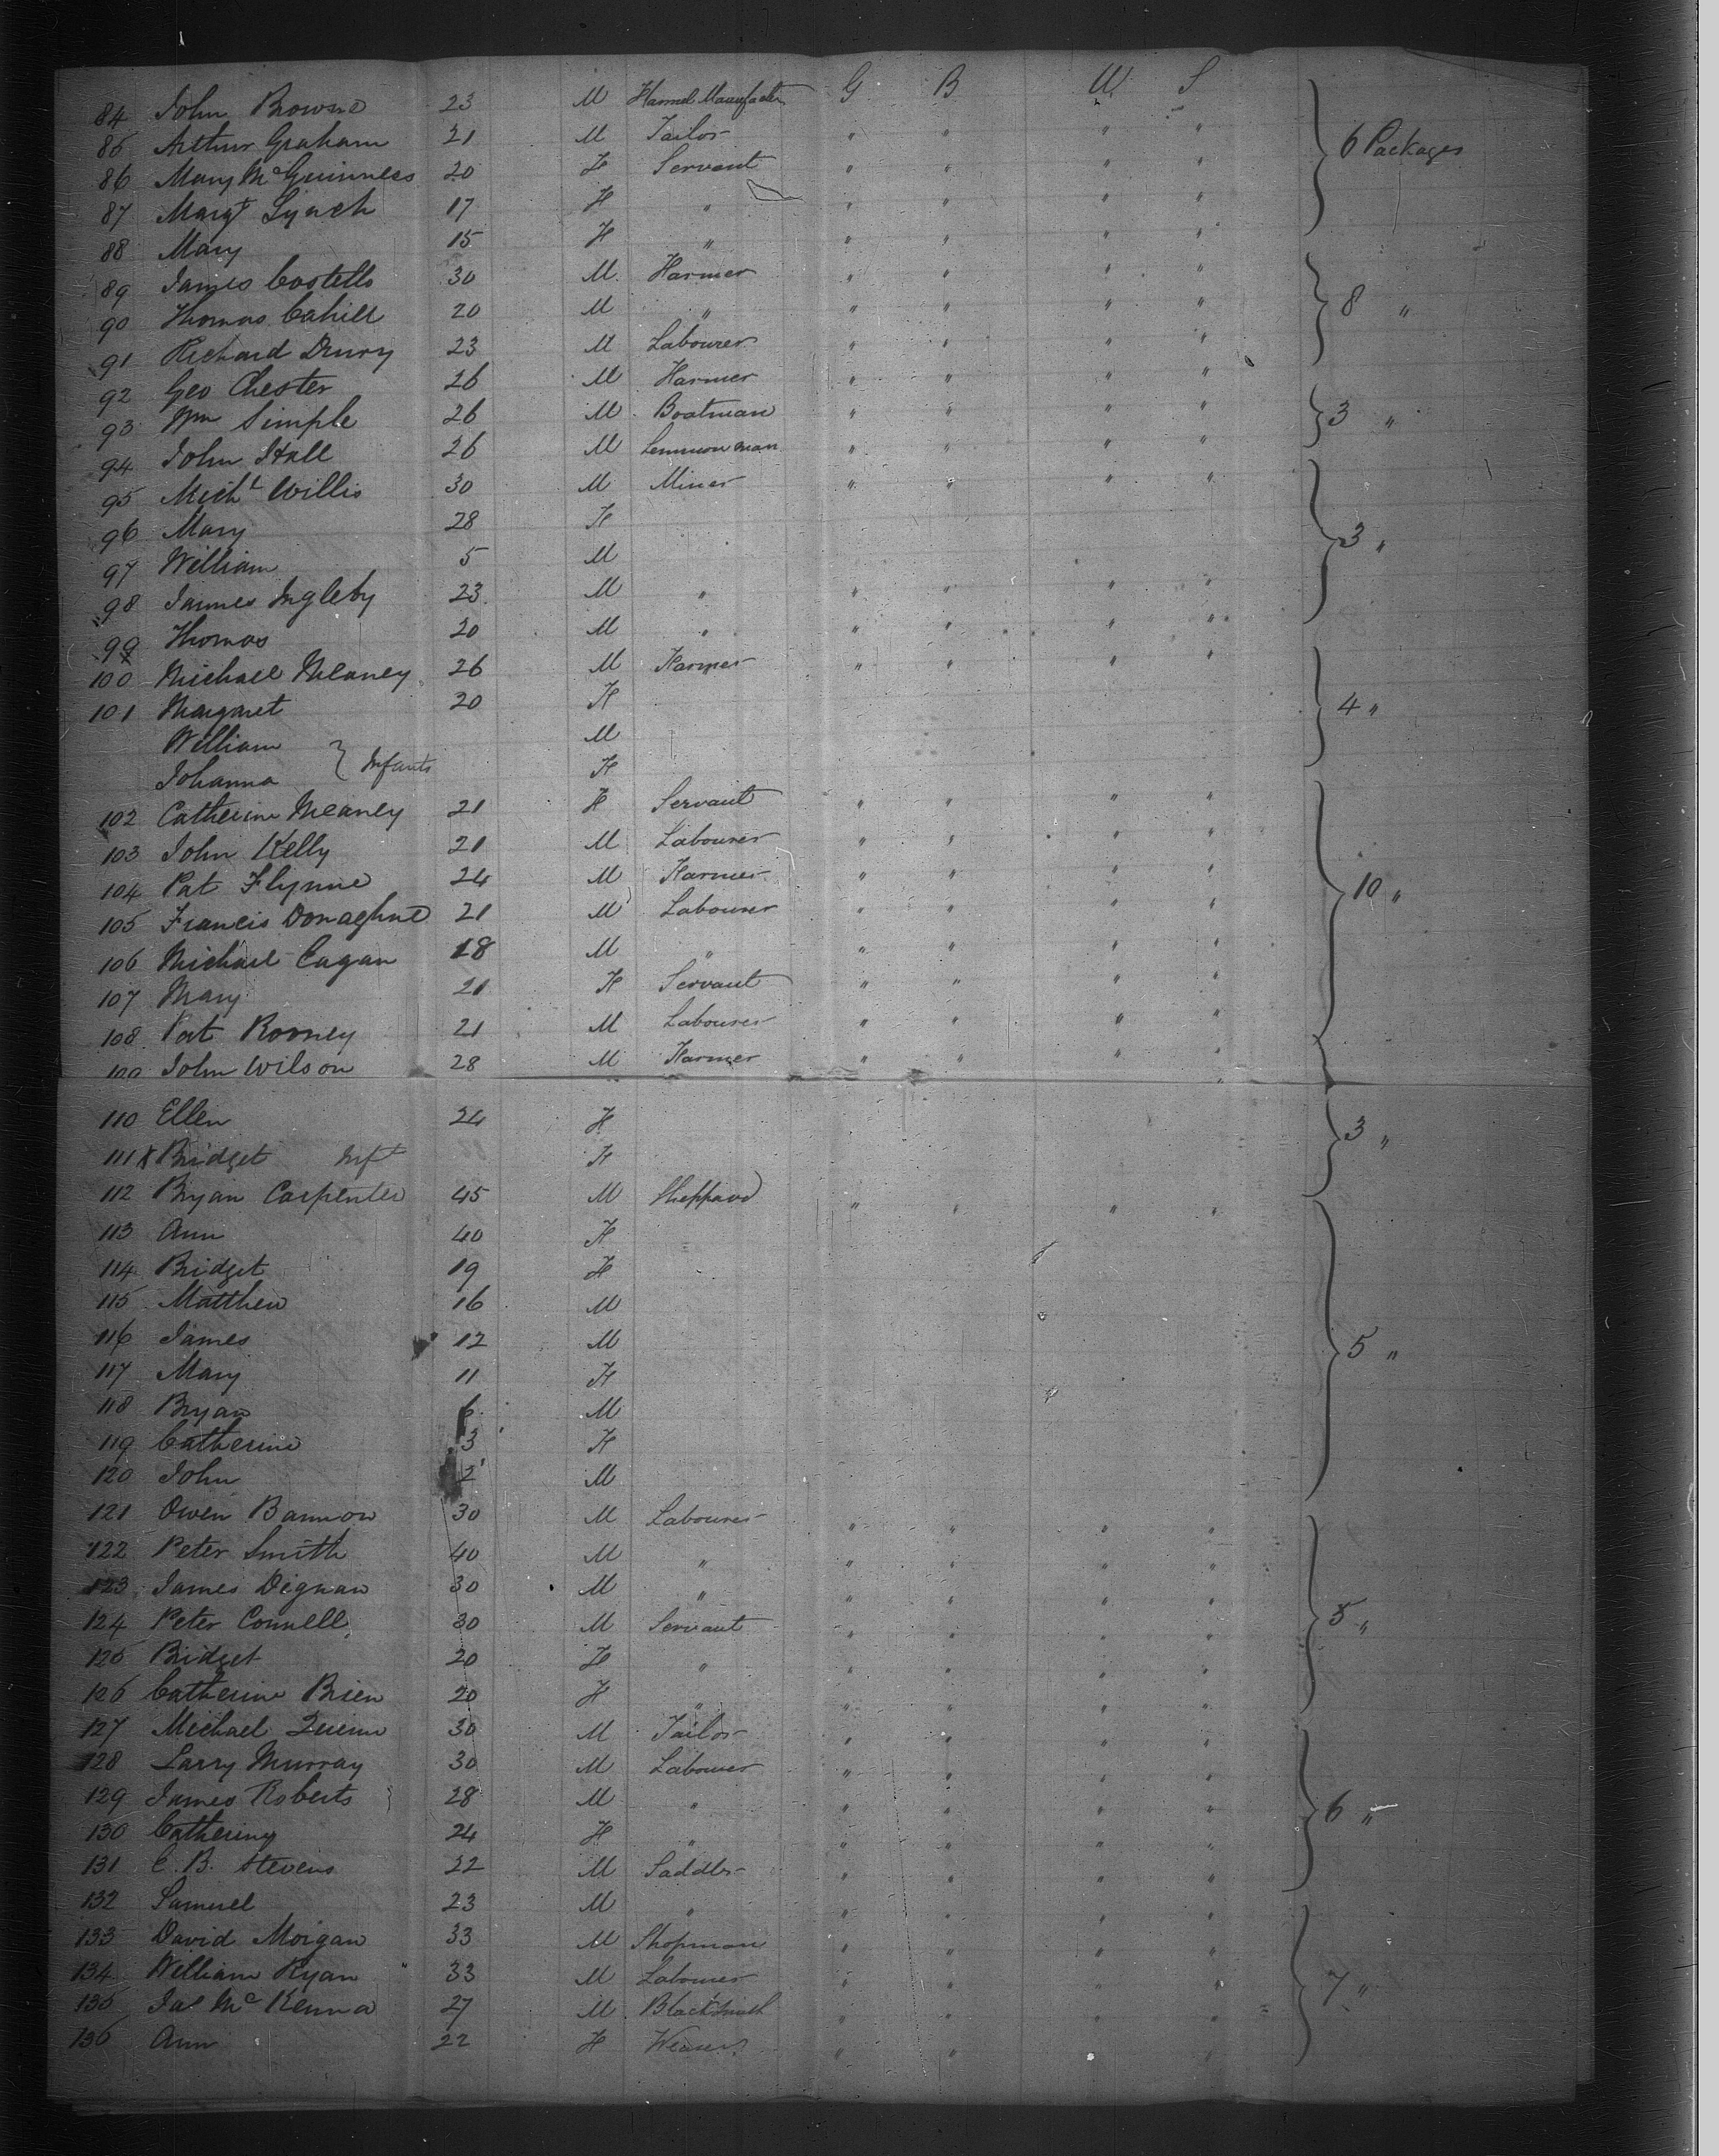 84 John Browne 23 M Flannel Manufactr G B U S
85 Arthur Graham 21 M Tailor " " " " } 6 Packages
86 Mary McGuinness 20 F Servant " " " "
87 Margt Lynch 17 F " " " " "
88 Mary 15 F " " " " "
89 James Costello 30 M Farmer " " " "
90 Thomas Cahill 20 M " " " " " } 8 "
91 Richard Drury 23 M Labourer " " " "
92 Geo Chester 26 M Farmer " " " "
93 Wm Simple 26 M Boatman " " " " } 3 "
94 John Hall 26 M " " " "
95 Michl Willis 30 M Miner " " " "
96 Mary 28 F
97 William 5 M } 3 "
98 James Ingleby 23 M " " " " "
99 Thomas 20 M " " " " "
100 Michael Meaney 26 M Farmer " " " "
101 Margaret 20 F } 4 "
William M
Johanna } Infants F
102 Catherine Meaney 21 F Servant " " " "
103 John Kelly 21 M Labourer " " " "
104 Pat Flynne 24 M Farmer " " " " } 10 "
105 Francis Donaghue 21 M Labourer " " " "
106 Michael Eagan 18 M " " " " "
107 Mary 21 F Servant " " " "
108 Pat Rooney 21 M Labourer " " " "
109 John Wilson 28 M Farmer " " " "
110 Ellen 24 F } 3 "
111 X Bridget Inft F
112 Bryan Carpenter 45 M Sheppard " " " "
113 Ann 40 F
114 Bridget 19 F
115 Matthew 16 M
116 James 12 M } 5 "
117 Mary 11 F
118 Bryan 6 M
119 Catherine 3 F
120 John 2 M
121 Owen Bannon 30 M Labourer " " " "
122 Peter Smith 40 M " " " " "
123 James Dignan 30 M " " " " "
124 Peter Connell 30 M Servant " " " " } 5 "
125 Bridget 20 F " " " " "
126 Catherine Brien 20 F " " " " "
127 Michael Quinn 30 M Tailor " " " "
128 Larry Murray 30 M Labourer " " " "
129 James Roberts 28 M " " " " " } 6 "
130 Catherine 24 F " " " " "
131 C. B. Stevens 22 M Saddler " " " "
132 Samuel 23 M " " " " "
133 David Morgan 33 M Shopman " " " "
134 William Ryan 33 M Labourer " " " " } 7 "
135 Jas McKenna 27 M Blacksmith " " " "
136 Ann 22 F Weaver " "